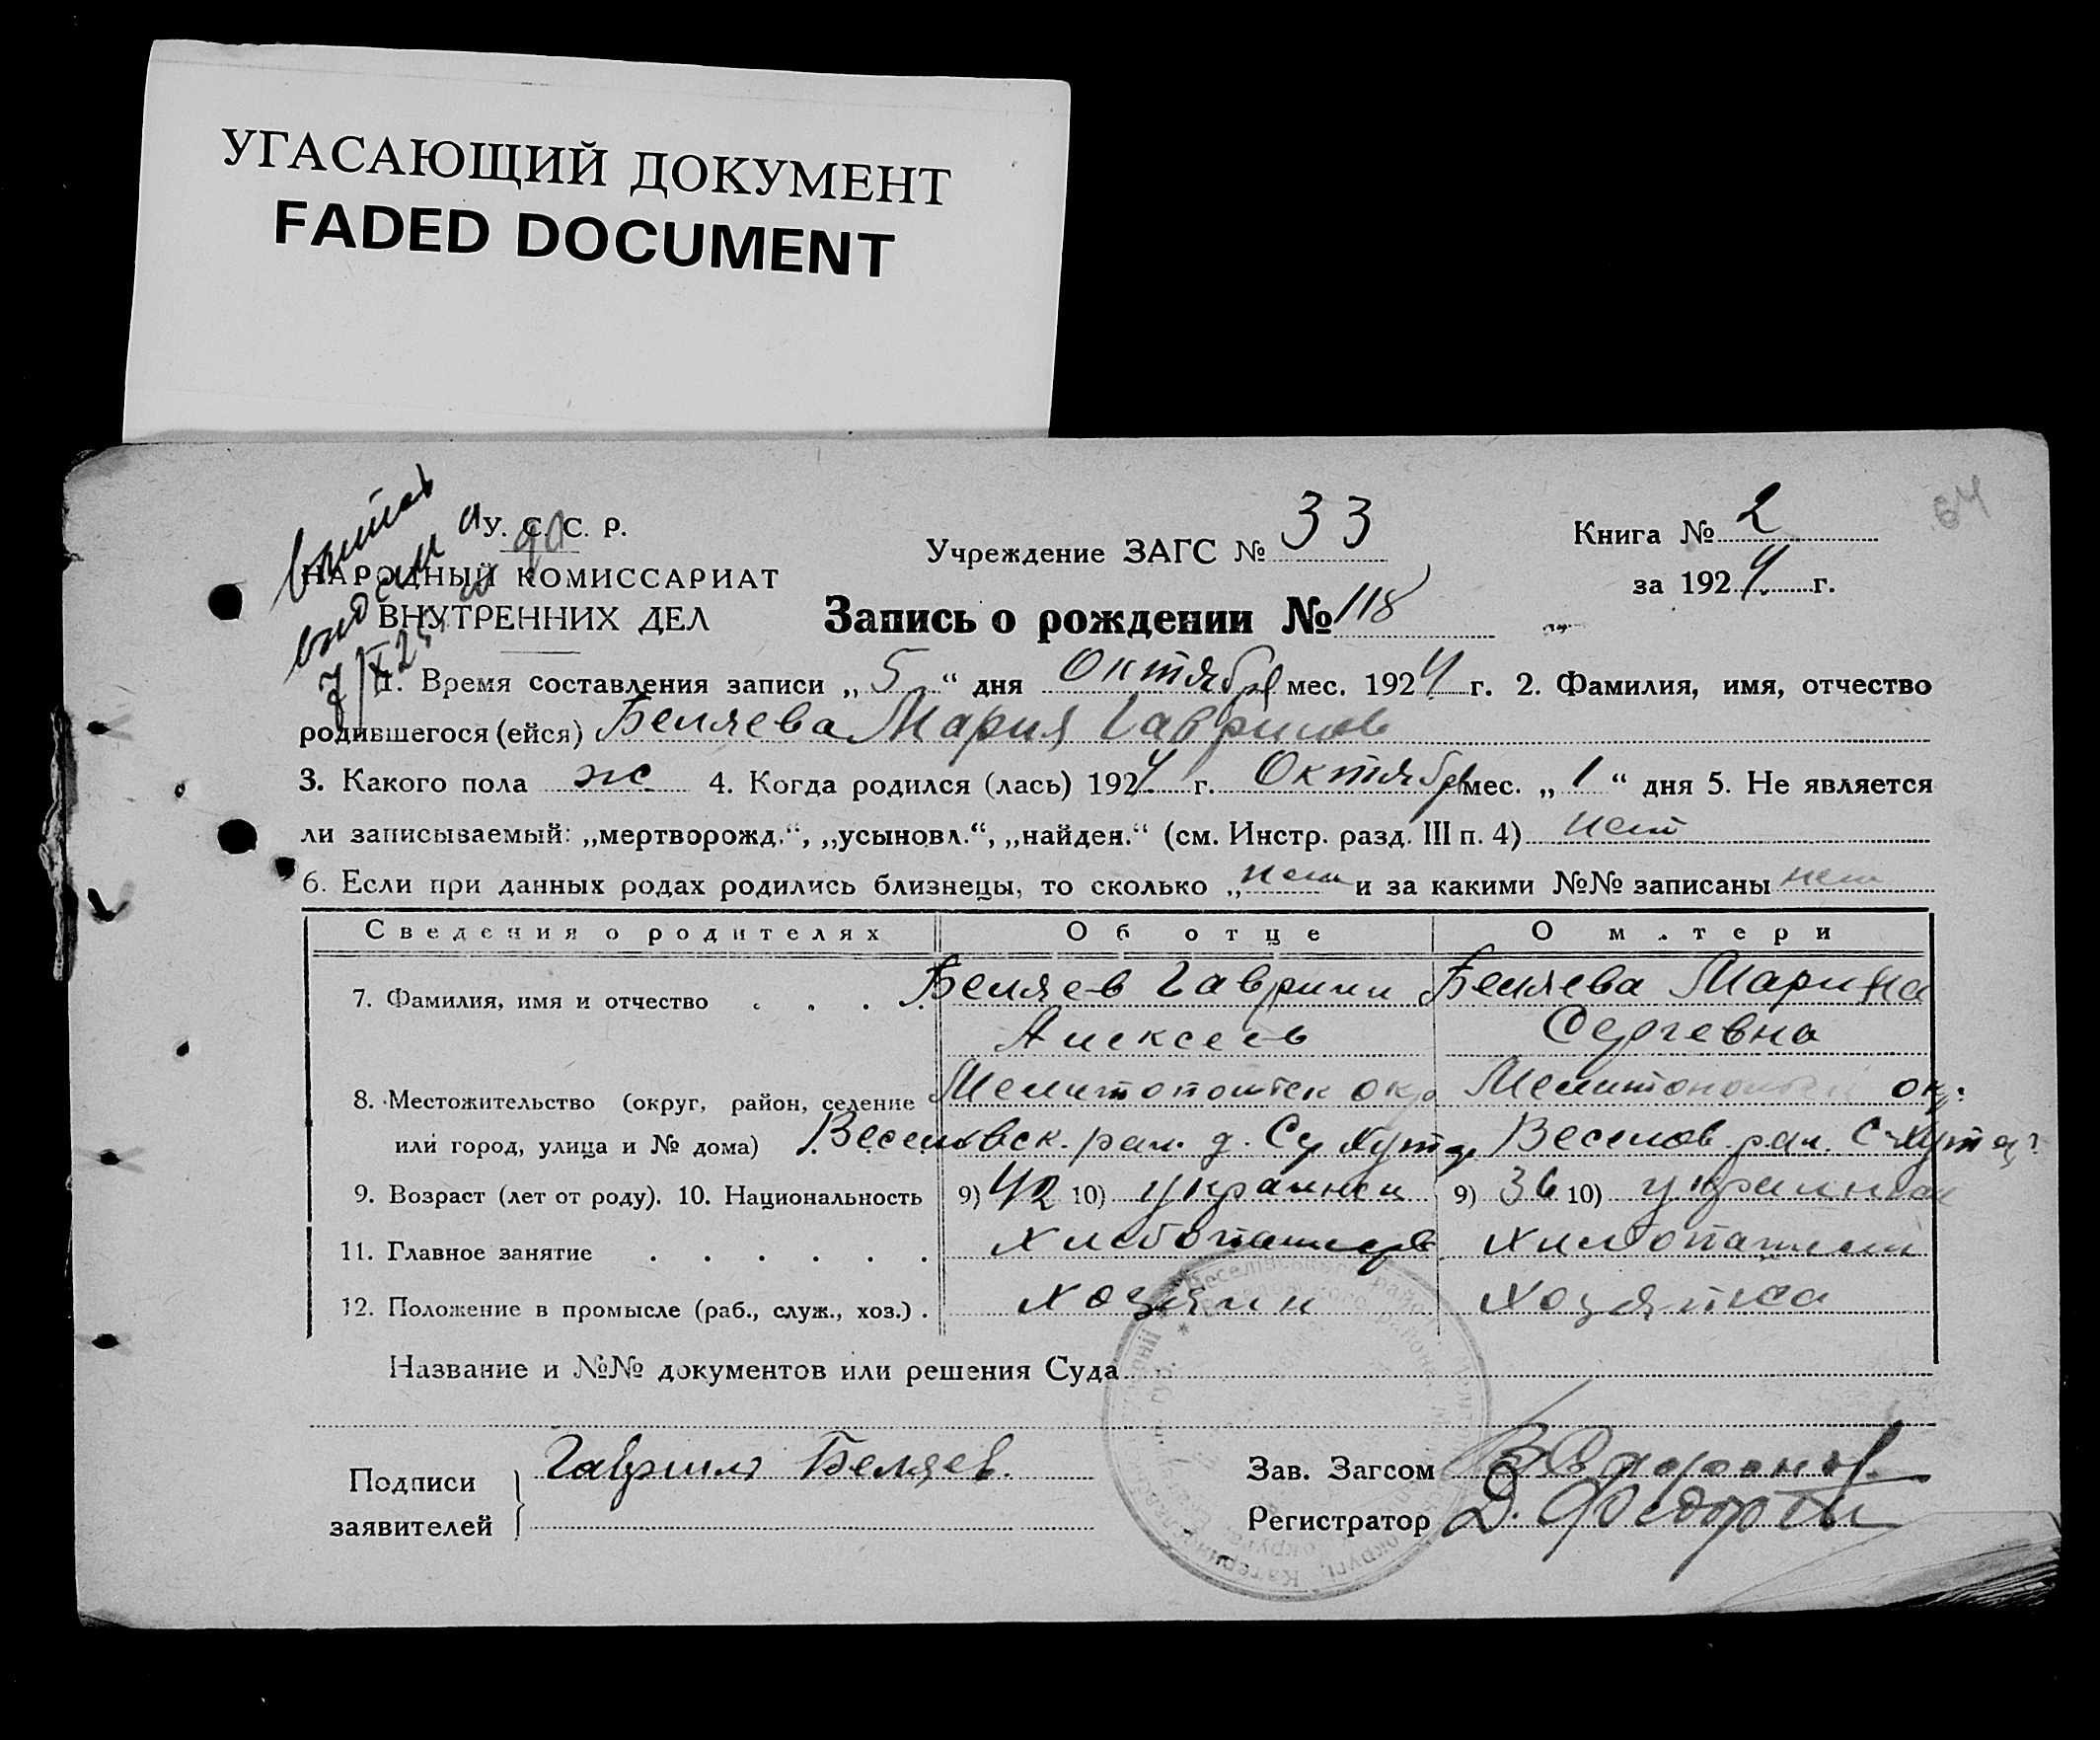 УГАСАЮЩИЙ ДОКУМЕНТ
FADED DOCUMENT
У. С. С. Р.
НАРОДНЫЙ КОМИССАРИАТ
ВНУТРЕННИХ ДЕЛ
Учреждение ЗАГС № 33
Книга № 2
за 1924 г.
64
Запись о рождении № 118
1. Время составления записи „ 5 “ дня Октября мес. 1924 г. 2. Фамилия, имя, отчество
родившегося (ейся) Беляева Мария Гаврилов
3. Какого пола ж 4. Когда родился (лась) 1924 г. Октября мес. „ 1 “ дня 5. Не является
ли записываемый: „мертворожд.“, „усыновл.“, „найден.“ (см. Инстр. разд. III п. 4) нет
6. Если при данных родах родились близнецы, то сколько „ нет и за какими №№ записаны нет
Сведения о родителях Об отце О м.тери
7. Фамилия, имя и отчество . . . . Беляев Гаврил Беляева Марина
Алексеев Сергевна
8. Местожительство (округ, район, селение Мелитопольск окр Мелитопольск ок.
или город, улица и № дома) Веселовск. рал. д. Веселов рал.
9. Возраст (лет от роду). 10. Национальность 9) 42 10) украинец 9) 36 10) украинка
11. Главное занятие . . . . . . Хлебопашец
12. Положение в промысле (раб., служ., хоз.) . хозяин хозяйка
Название и №№ документов или решения Суда
Подписи
заявителей
Гаврил Беляев.
Зав. Загсом
Регистратор Д.